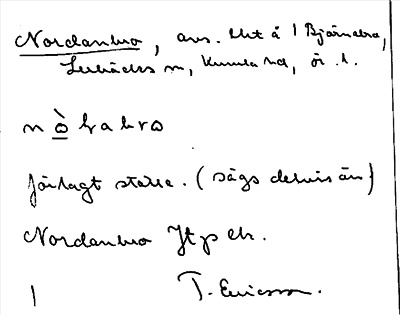 Nordanbro, avs. lht å 1 Björnabro,
Lerbäcks sn, Kumla hd, ör. l.
n ò ra bro
förlagt ställe. (sägs delvis än)
Nordanbro Jtp ek.
1 T. Ericsson.